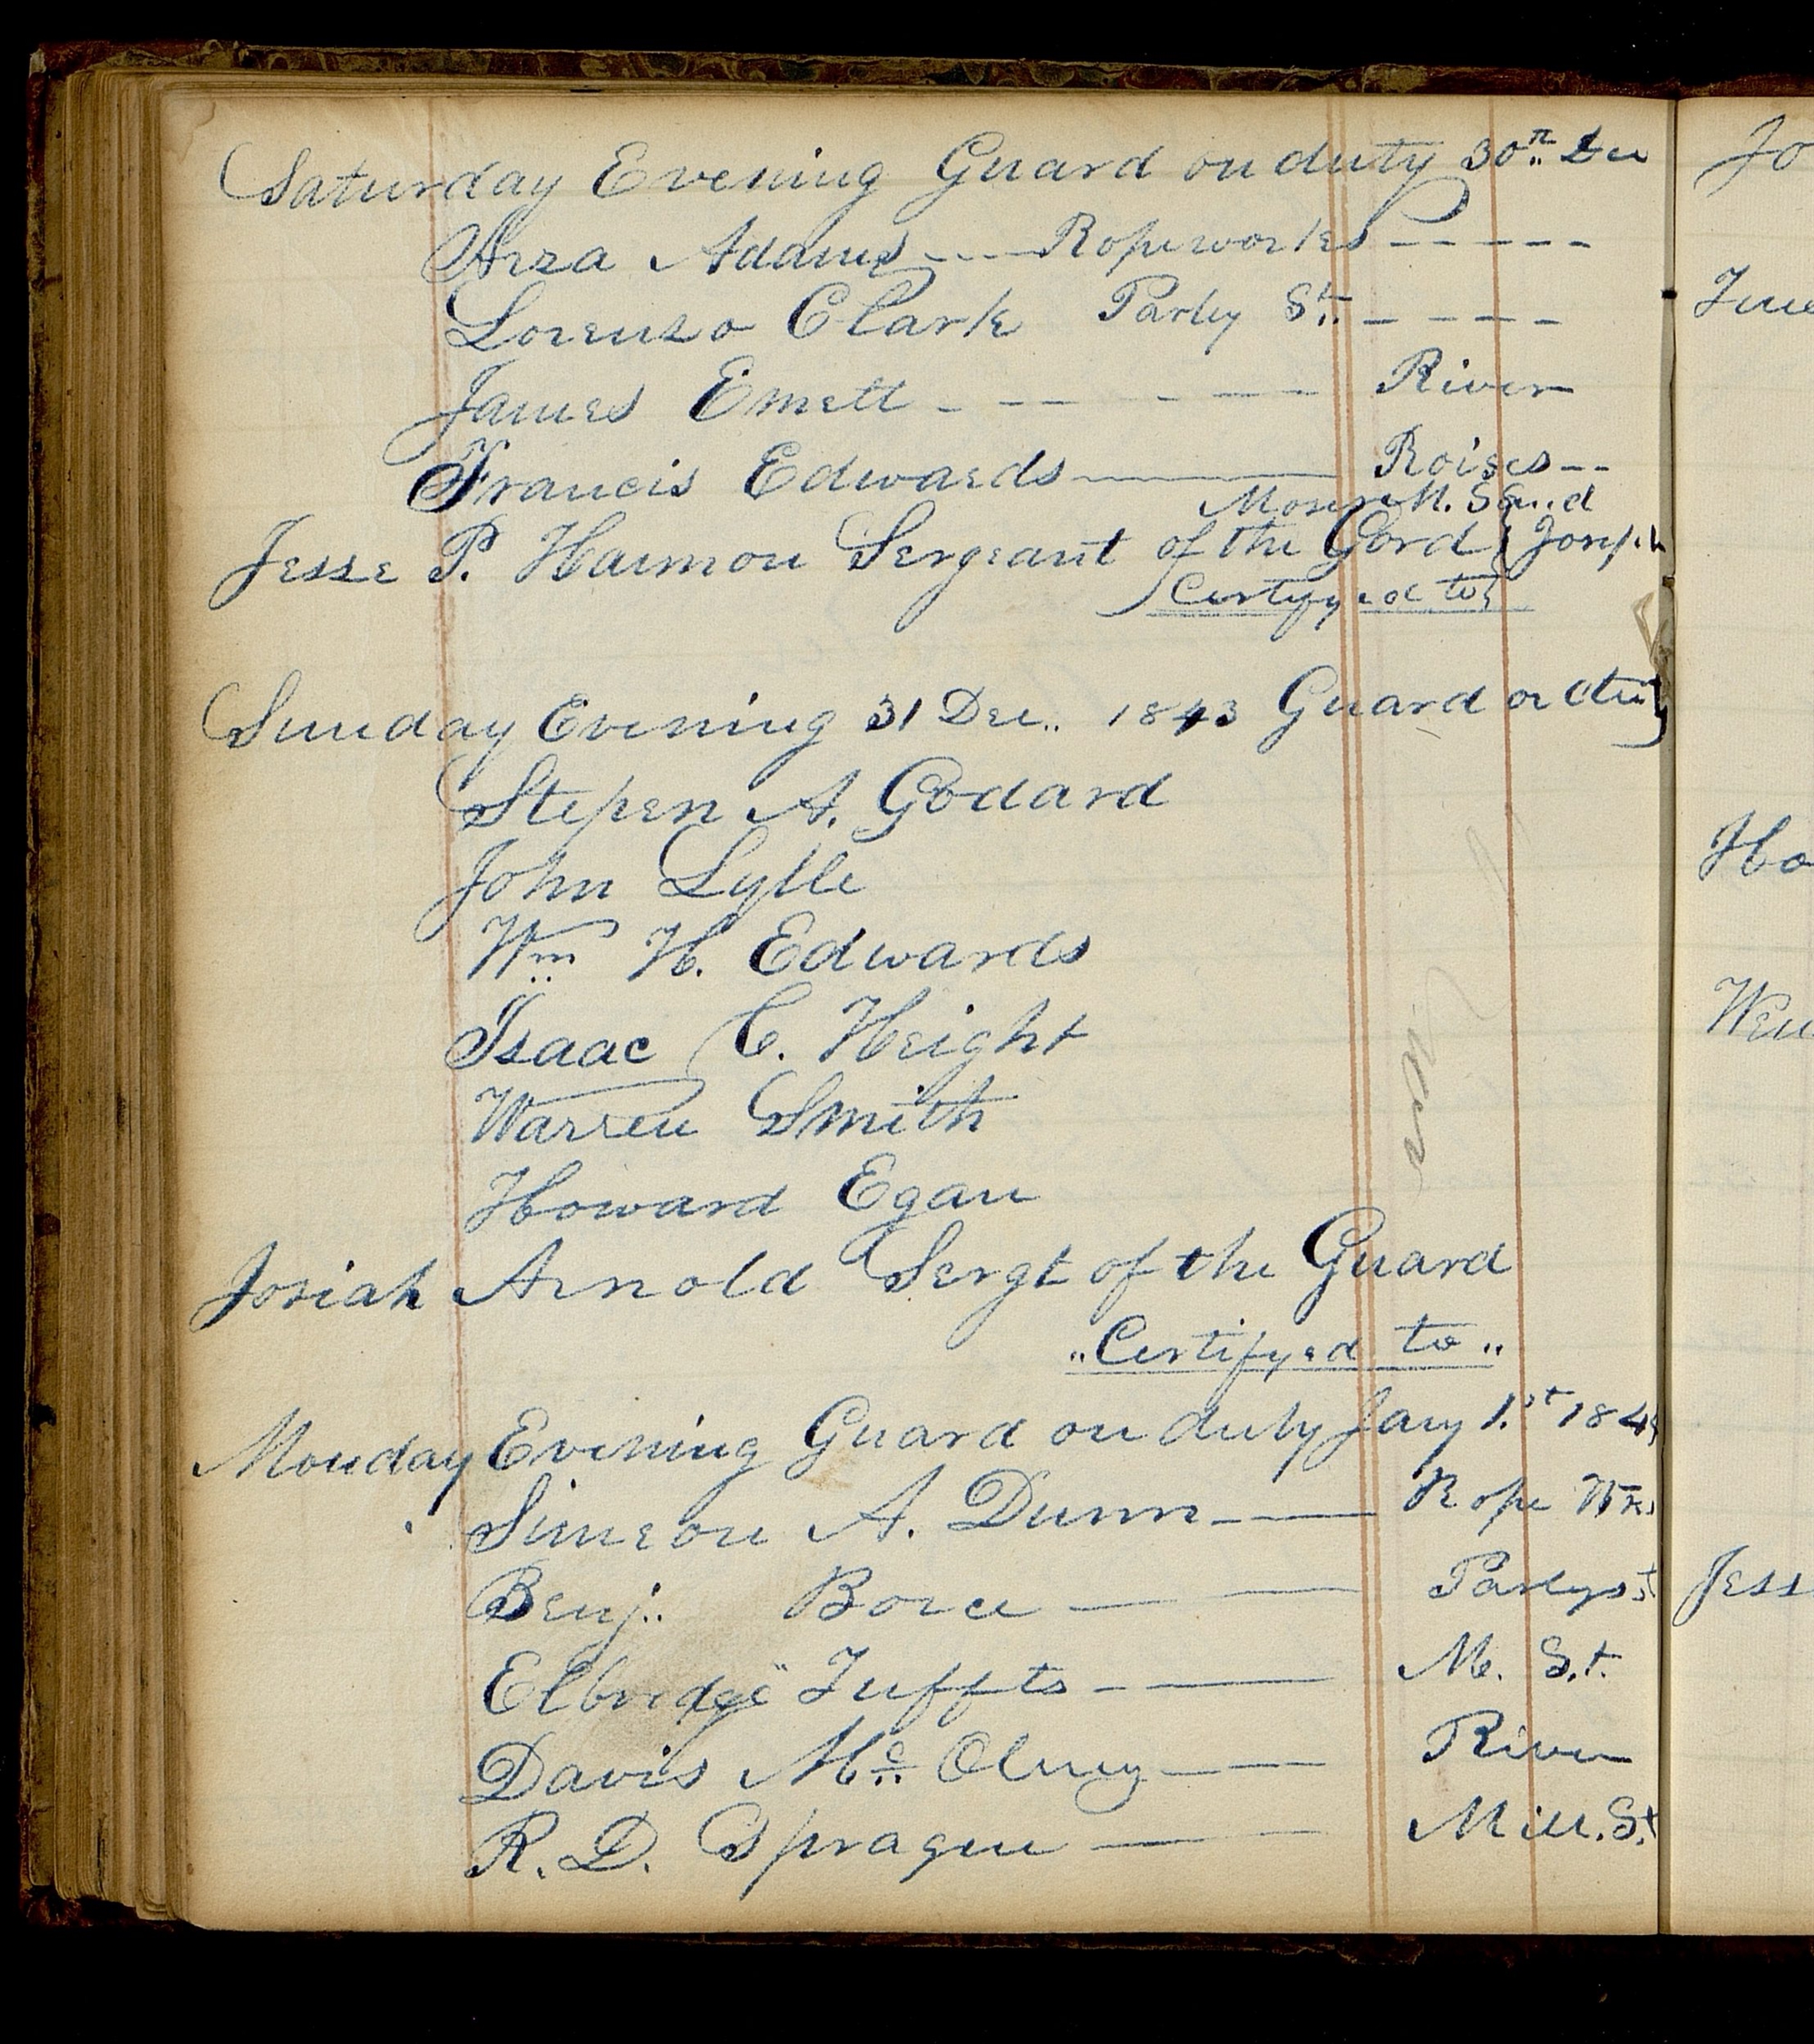 Saturday Evening Guard on duty 30th Dec
Arza Adams --- Ropeworks -----
Lorenzo Clark Parley St. ----
James Emett - -- - -- River
Francis Edwards —— Roises --
Jesse P. Harmon Sergeant of the Gord Joseph
Certifyed to
Sunday Evening 31 Dec.. 1843 Guard on duty
Stepen A. Godard
John Lylle
Wm H. Edwards
Isaac C. Height
Warren Smith
Howard Egan
Josiah Arnold Sergt of the Guard
„Certifyed to„
Monday Evening Guard on duty Jany 1.st 184
Simeon A. Dunn —— Rope Wks
Benj.. Boice —— Parley st
Elbridge Tuffts —— M. S.t.
Davis Mc Olney —— River
R. D. Sprague —— Mill. S.t
Jo
Tue
Ho
Wen
Jess